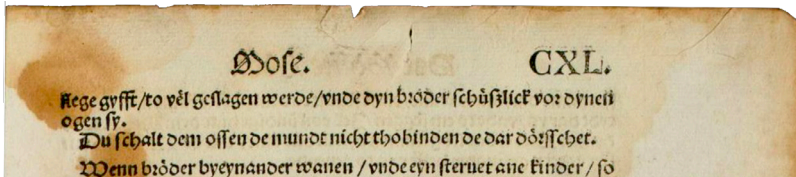 Mose. CXL.
slege gyfft/to vël geslagen werde/vnde dyn bröder schüszlick vor dynen
ogen sy.
Du schalt dem ossen de mundt nicht thobinden de dar dörsschet.
Wenn bröder byeynander wanen / vnde eyn steruet ane kinder / so